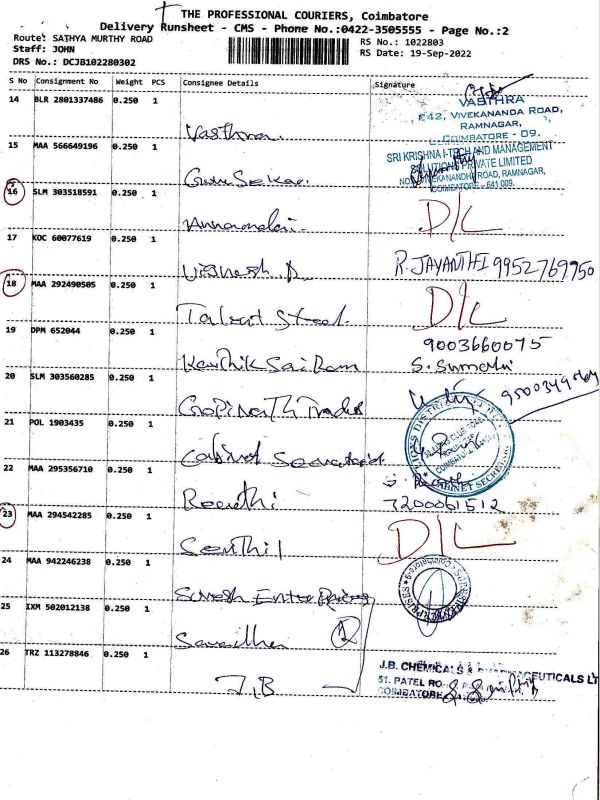 THE PROFESSIONAL COURIERS, Coimbatore
Delivery Runsheet - CMS - Phone No.:0422-3505555 - Page No.:2
Route: SATHYA MURTHY ROAD
RS No.: 1022803
Staff: JOHN
RS Date: 19-Sep-2022
DRS No.: DCJB102280302
S No Consignment No Weight PCS Consignee Details Signature
14 BLR 2801337486 0.250 1 Vasthra
VASTHRA
E42, VIVEKANANDA ROAD,
RAMNAGAR,
COIMBATORE - 09.
15 MAA 566649196 0.250 1 Guru Sekar
SRI KRISHNA I-TECH AND MANAGEMENT
SOLUTIONS PRIVATE LIMITED
VIVEKANANDHA ROAD, RAMNAGAR,
COIMBATORE - 641 009.
16 SLM 303518591 0.250 1 Annamalai D/L
17 KOC 60077619 0.250 1 Vignesh R. JAYANTHI 9952769950
18 MAA 292490505 0.250 1 Talent Street D/L
19 DPM 652044 0.250 1 Karthik Sai Ram 9003660075
S. Sumathi
20 SLM 303560285 0.250 1 Gopinath Traders
21 POL 1903435 0.250 1 Cabinet Secretariat
CABINET SECRE
22 MAA 295356710 0.250 1 Revathi 7200061512
23 MAA 294542285 0.250 1 Senthil D/L
24 MAA 942246238 0.250 1 Suresh Enterprises
25 IXM 502012138 0.250 1 2
26 TRZ 113278846 0.250 1 J.B
J.B. CHEMICALS & PHARMACEUTICALS LT
51. PATEL RO
COIMBATORE